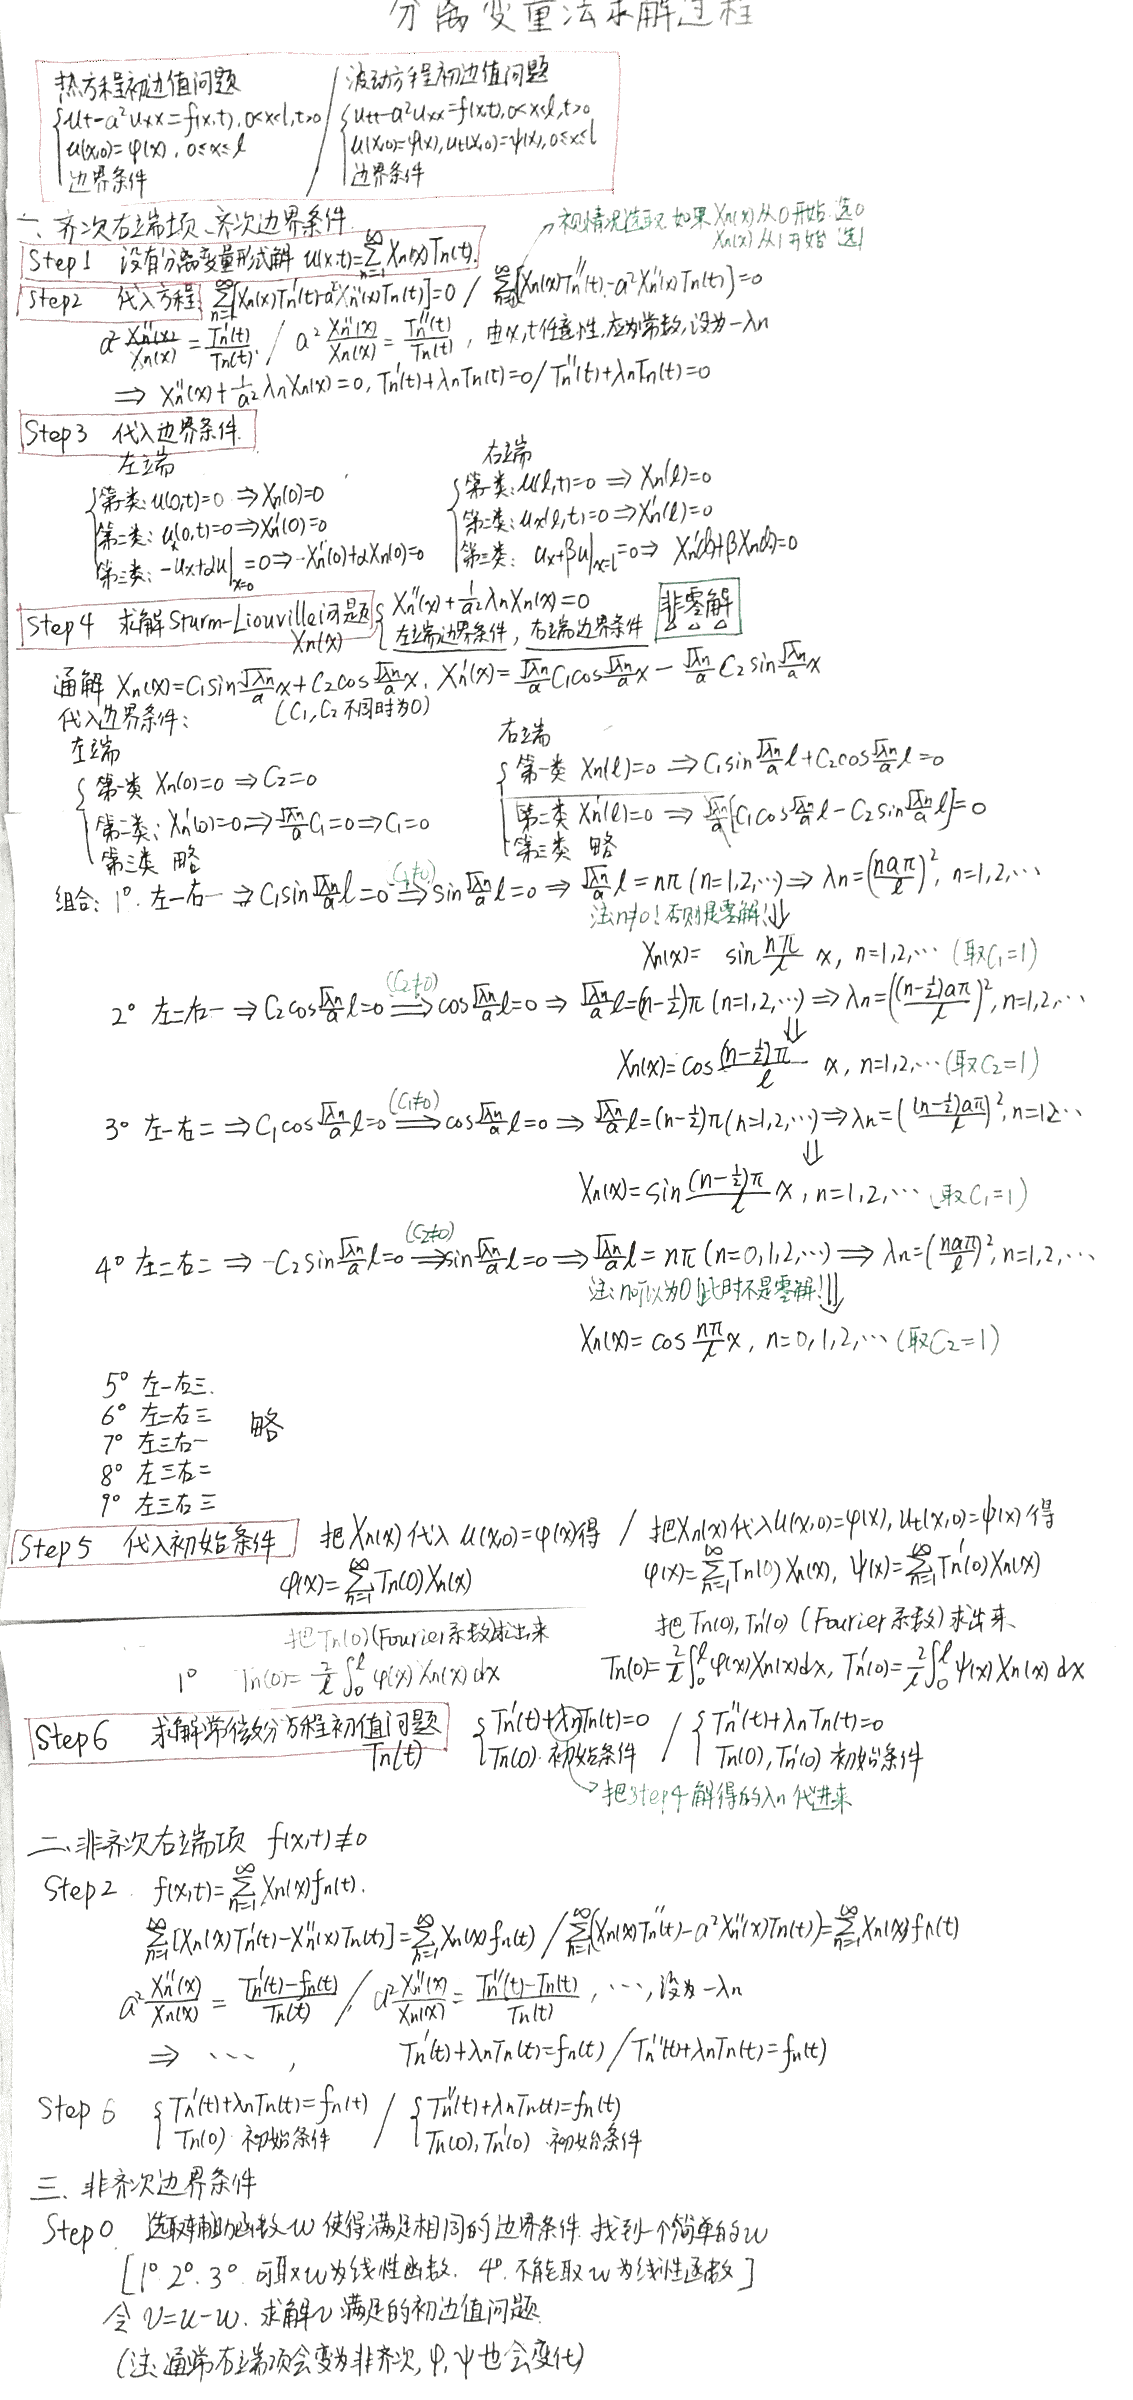 分离变量法求解过程
热方程初边值问题 / 波动方程初边值问题
{ut-a²uxx=f(x,t), 0<x<l, t>0 / {utt-a²uxx=f(x,t), 0<x<l, t>0
u(x,0)=φ(x), 0≤x≤l / u(x,0)=φ(x), ut(x,0)=ψ(x), 0≤x≤l
边界条件 / 边界条件
一、齐次右端项、齐次边界条件.
→视情况选取. 如果Xn(x)从0开始 选0
Xn(x)从1开始 选1
Step1 设有分离变量形式解 u(x,t)=∑_{n=1}^∞ Xn(x)Tn(t).
Step2 代入方程 ∑_{n=1}^∞[Xn(x)Tn'(t)-a²Xn''(x)Tn(t)]=0 / ∑_{n=1}^∞[Xn(x)Tn''(t)-a²Xn''(x)Tn(t)]=0
a² Xn''(x)/Xn(x) = Tn'(t)/Tn(t). / a² Xn''(x)/Xn(x) = Tn''(t)/Tn(t), 由x,t任意性,应为常数,设为-λn
⇒ Xn''(x)+1/a² λnXn(x)=0, Tn'(t)+λnTn(t)=0 / Tn''(t)+λnTn(t)=0
Step3 代入边界条件.
左端 右端
{第一类: u(0,t)=0 ⇒Xn(0)=0 {第一类: u(l,t)=0 ⇒ Xn(l)=0
第二类: ux(0,t)=0⇒Xn'(0)=0 第二类: ux(l,t)=0⇒Xn'(l)=0
第三类: -ux+αu|x=0=0⇒-Xn'(0)+αXn(0)=0 第三类: ux+βu|x=l=0⇒ Xn'(l)+βXn(l)=0
Step4 求解Sturm-Liouville问题 {Xn''(x)+1/a² λnXn(x)=0 非零解
Xn(x) 左端边界条件, 右端边界条件
通解 Xn(x)=C1sin √λn/a x+C2cos √λn/a x, Xn'(x)= √λn/a C1cos √λn/a x - √λn/a C2 sin √λn/a x
代入边界条件: (C1,C2 不同时为0)
左端 右端
{第一类 Xn(0)=0 ⇒C2=0 {第一类 Xn(l)=0 ⇒C1sin √λn/a l+C2cos √λn/a l=0
第二类: Xn'(0)=0⇒ √λn/a C1=0⇒C1=0 第二类 Xn'(l)=0 ⇒ √λn/a [C1cos √λn/a l-C2sin √λn/a l]=0
第三类 略 第三类 略
组合: 1°. 左一右一 ⇒ C1sin √λn/a l=0 (C1≠0)⇒ sin √λn/a l=0 ⇒ √λn/a l=nπ (n=1,2,…)⇒ λn=(naπ/l)², n=1,2,…
注:n≠0!否则是零解!⇓
Xn(x)= sin nπ/l x, n=1,2,… (取C1=1)
2° 左二右一 ⇒C2cos √λn/a l=0 (C2≠0)⇒ cos √λn/a l=0 ⇒ √λn/a l=(n-½)π (n=1,2,…)⇒λn=((n-½)aπ/l)², n=1,2,…
⇓
Xn(x)=cos (n-½)π/l x, n=1,2,…(取C2=1)
3° 左一右二 ⇒C1cos √λn/a l=0 (C1≠0)⇒ cos √λn/a l=0 ⇒ √λn/a l=(n-½)π(n=1,2,…)⇒λn=((n-½)aπ/l)², n=1,2…
⇓
Xn(x)=sin (n-½)π/l x, n=1,2,… (取C1=1)
4° 左二右二 ⇒ -C2sin √λn/a l=0 (C2≠0)⇒ sin √λn/a l=0 ⇒ √λn/a l= nπ (n=0,1,2,…)⇒ λn=(naπ/l)², n=1,2,…
注:n可以为0!此时不是零解!⇓
Xn(x)= cos nπ/l x, n=0,1,2,… (取C2=1)
5° 左一右三.
6° 左二右三
7° 左三右一 略
8° 左三右二
9° 左三右三
Step5 代入初始条件 把Xn(x)代入 u(x,0)=φ(x)得 / 把Xn(x)代入u(x,0)=φ(x), ut(x,0)=ψ(x)得
φ(x)=∑_{n=1}^∞Tn(0)Xn(x) φ(x)=∑_{n=1}^∞Tn(0)Xn(x), ψ(x)=∑_{n=1}^∞Tn'(0)Xn(x)
把Tn(0)(Fourier系数)求出来 把Tn(0),Tn'(0) (Fourier系数)求出来.
1° Tn(0)= 2/l ∫₀ˡ φ(x)Xn(x)dx Tn(0)= 2/l ∫₀ˡφ(x)Xn(x)dx, Tn'(0)= 2/l ∫₀ˡ ψ(x)Xn(x)dx
Step6 求解常微分方程初值问题 {Tn'(t)+λnTn(t)=0 / {Tn''(t)+λnTn(t)=0
Tn(t) Tn(0) 初始条件 / Tn(0),Tn'(0) 初始条件
→把Step4解得的λn代进来
二、非齐次右端项 f(x,t)≢0
Step2. f(x,t)=∑_{n=1}^∞Xn(x)fn(t).
∑_{n=1}^∞[Xn(x)Tn'(t)-Xn''(x)Tn(t)]=∑_{n=1}^∞Xn(x)fn(t) / ∑_{n=1}^∞[Xn(x)Tn''(t)-a²Xn''(x)Tn(t)]=∑_{n=1}^∞Xn(x)fn(t)
a² Xn''(x)/Xn(x) = (Tn'(t)-fn(t))/Tn(t) / a² Xn''(x)/Xn(x) = (Tn''(t)-Tn(t))/Tn(t), …, 设为-λn
⇒ …, Tn'(t)+λnTn(t)=fn(t) / Tn''(t)+λnTn(t)=fn(t)
Step 6 {Tn'(t)+λnTn(t)=fn(t) / {Tn''(t)+λnTn(t)=fn(t)
Tn(0) 初始条件 / Tn(0),Tn'(0) 初始条件
三、非齐次边界条件
Step0. 选取辅助函数w 使得满足相同的边界条件. 找到一个简单的w
[1°.2°.3°.可取w为线性函数. 4°.不能取w为线性函数]
令 v=u-w. 求解v满足的初边值问题.
(注:通常右端项会变为非齐次,φ,ψ也会变化)